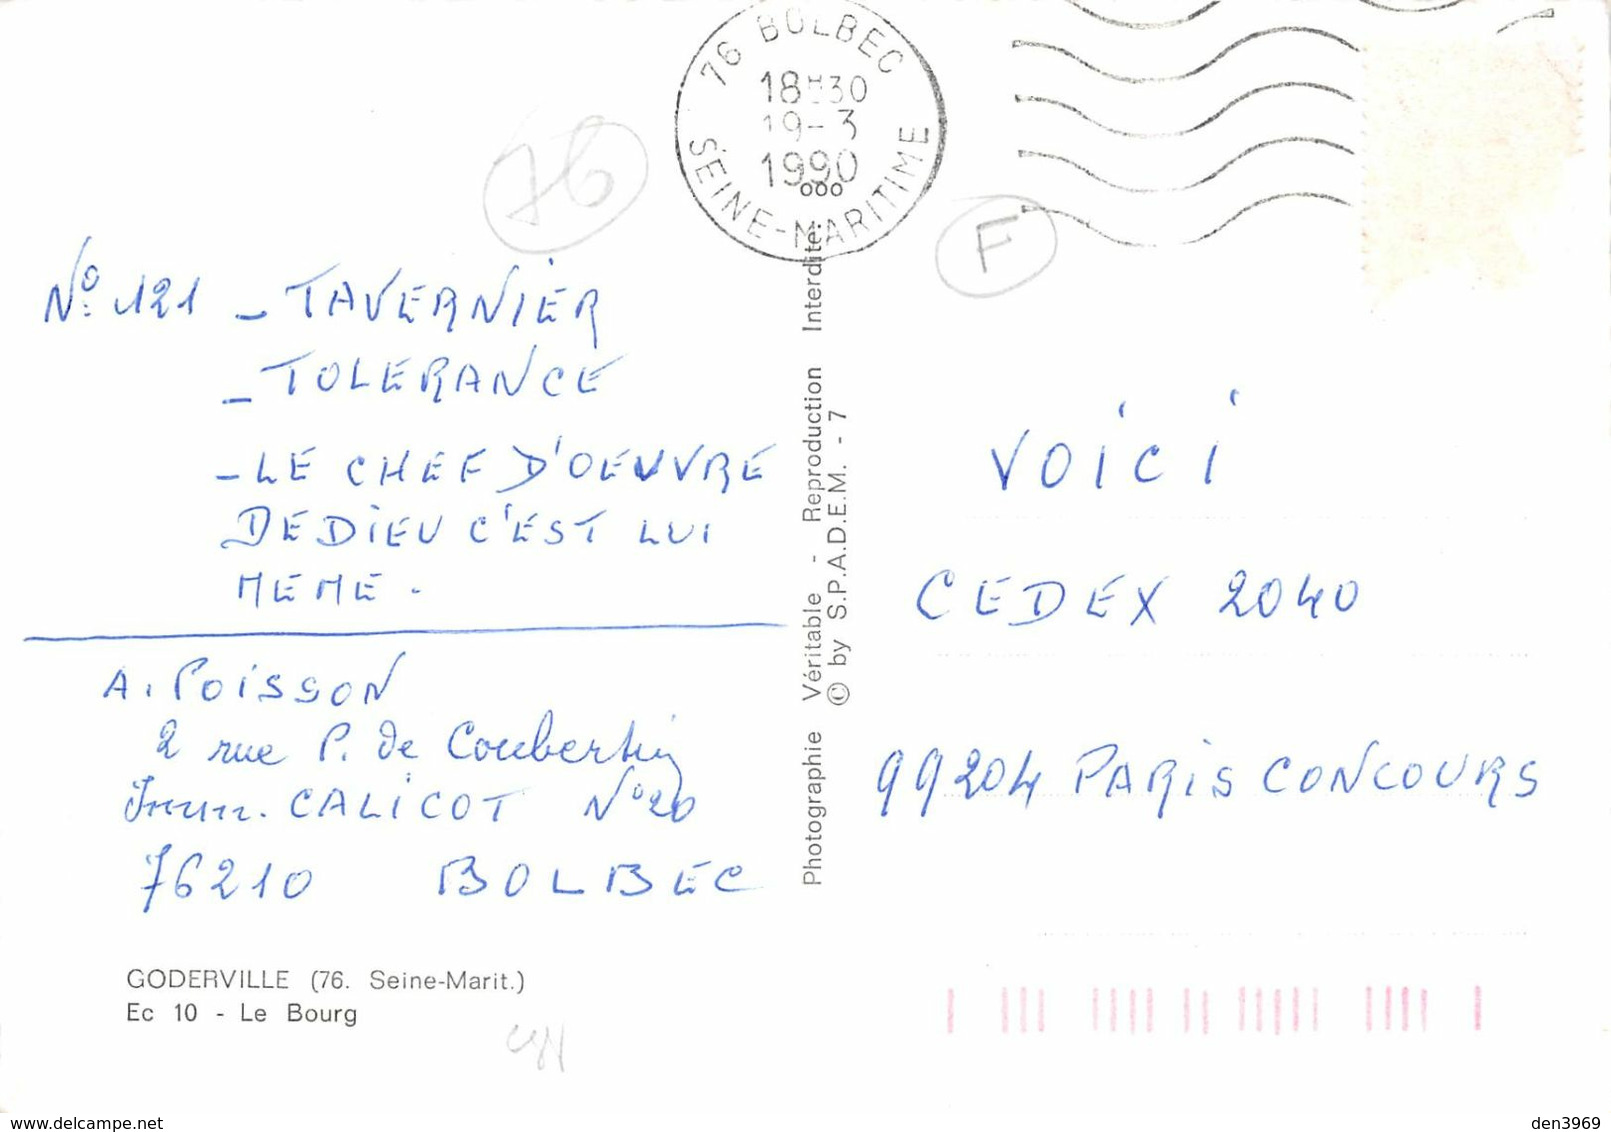 76 BOLBEC
18H30
19-3
1990
000
SEINE-MARITIME
76
F
N° 121 - TAVERNIER
- TOLERANCE
- LE CHEF D'OEUVRE
DE DIEU C'EST LUI
MEME.
A. POISSON
2 rue P. de Coubertin
Imm. CALICOT N° 20
76210 BOLBEC
GODERVILLE (76. Seine-Marit.)
Ec 10 - Le Bourg
Photographie Véritable - Reproduction Interdite.
© by S.P.A.D.E.M. - 7
VOICI
CEDEX 2040
99204 PARIS CONCOURS
www.delcampe.net
den3969